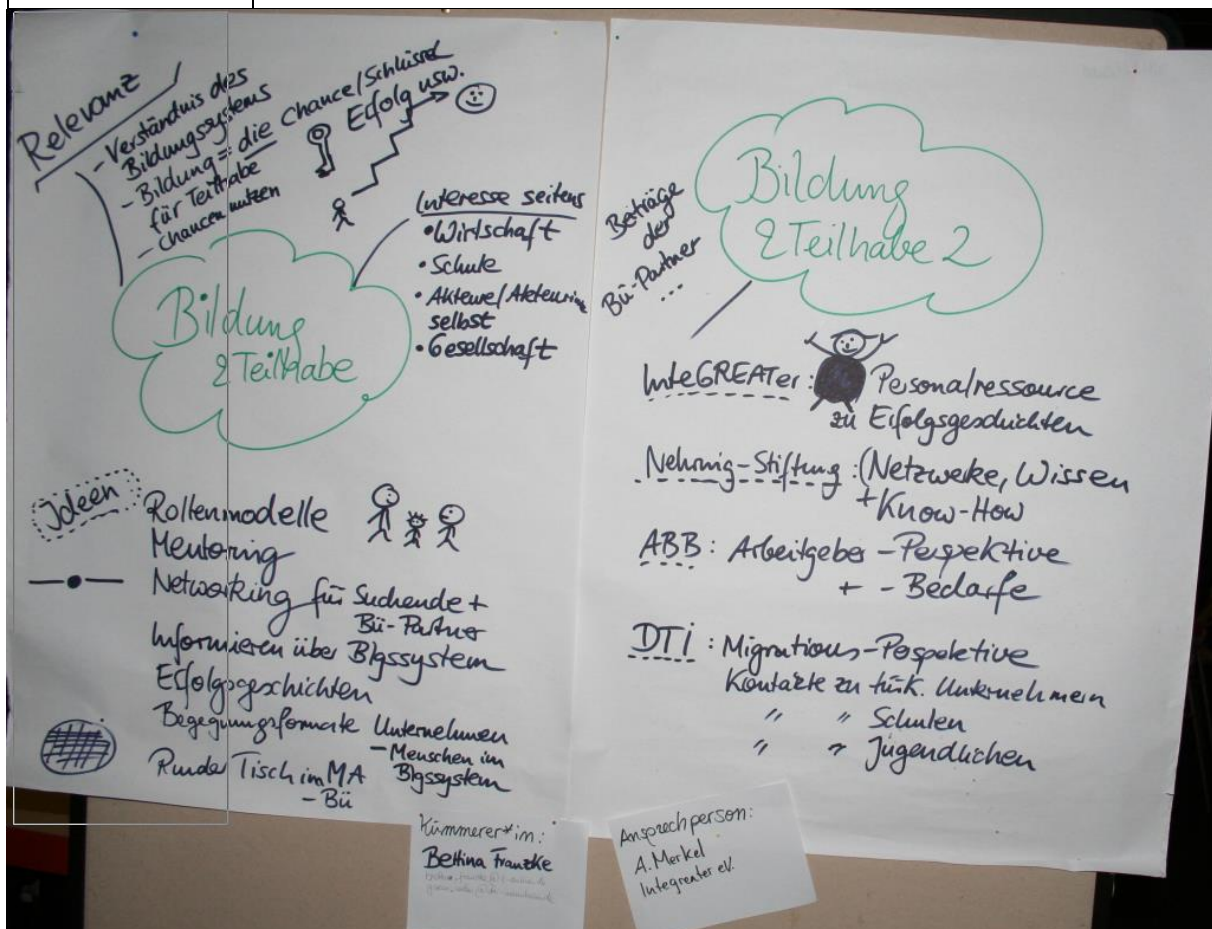 Relevanz
- Verständnis des
Bildungssystems
- Bildung = die Chance/Schlüssel
für Teilhabe
Erfolg usw.
- Chancen nutzen
Bildung
& Teilhabe
Interesse seitens
• Wirtschaft
• Schule
• Akteure/Akteurinnen
selbst
• Gesellschaft
Ideen
Rollenmodelle
Mentoring
Networking für Suchende +
Bü-Partner
Informieren über Blgssystem
Erfolgsgeschichten
Begegnungsformate Unternehmen
- Menschen im
Blgssystem
Runder Tisch im MA
- Bü
Kümmerer*in:
Bettina Franzke
Beiträge
der
Bü-Partner
...
Bildung
& Teilhabe 2
InteGREATer: Personalressource
zu Erfolgsgeschichten
-Stiftung: (Netzwerke, Wissen
+ Know-How
ABB: Arbeitgeber - Perspektive
+ - Bedarfe
DTI: Migrations-Perspektive
Kontakte zu türk. Unternehmern
" " Schulen
" " Jugendlichen
Ansprechperson:
A. Merkel
Integreater e.V.